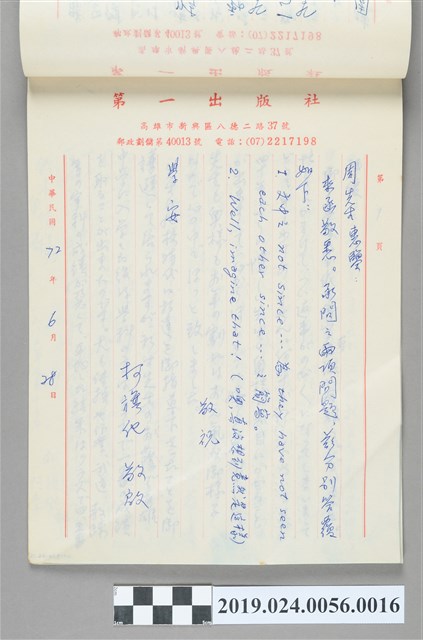 第一出版社
高雄市新興區八德二路37號
郵政劃儲第40013號 電話:(07)2217198
第 頁
周先生惠鑒:
來函敬悉。承問之兩項問題,茲分別答覆
如下:
1 文中之 not since... 為 they have not seen
each other since... 之簡寫。
2. Well, imagine that! (噢,真沒想到竟然是這樣)
敬祝
學安
柯旗化 敬啟
中華民國72年6月28日
2019.024.0056.0016